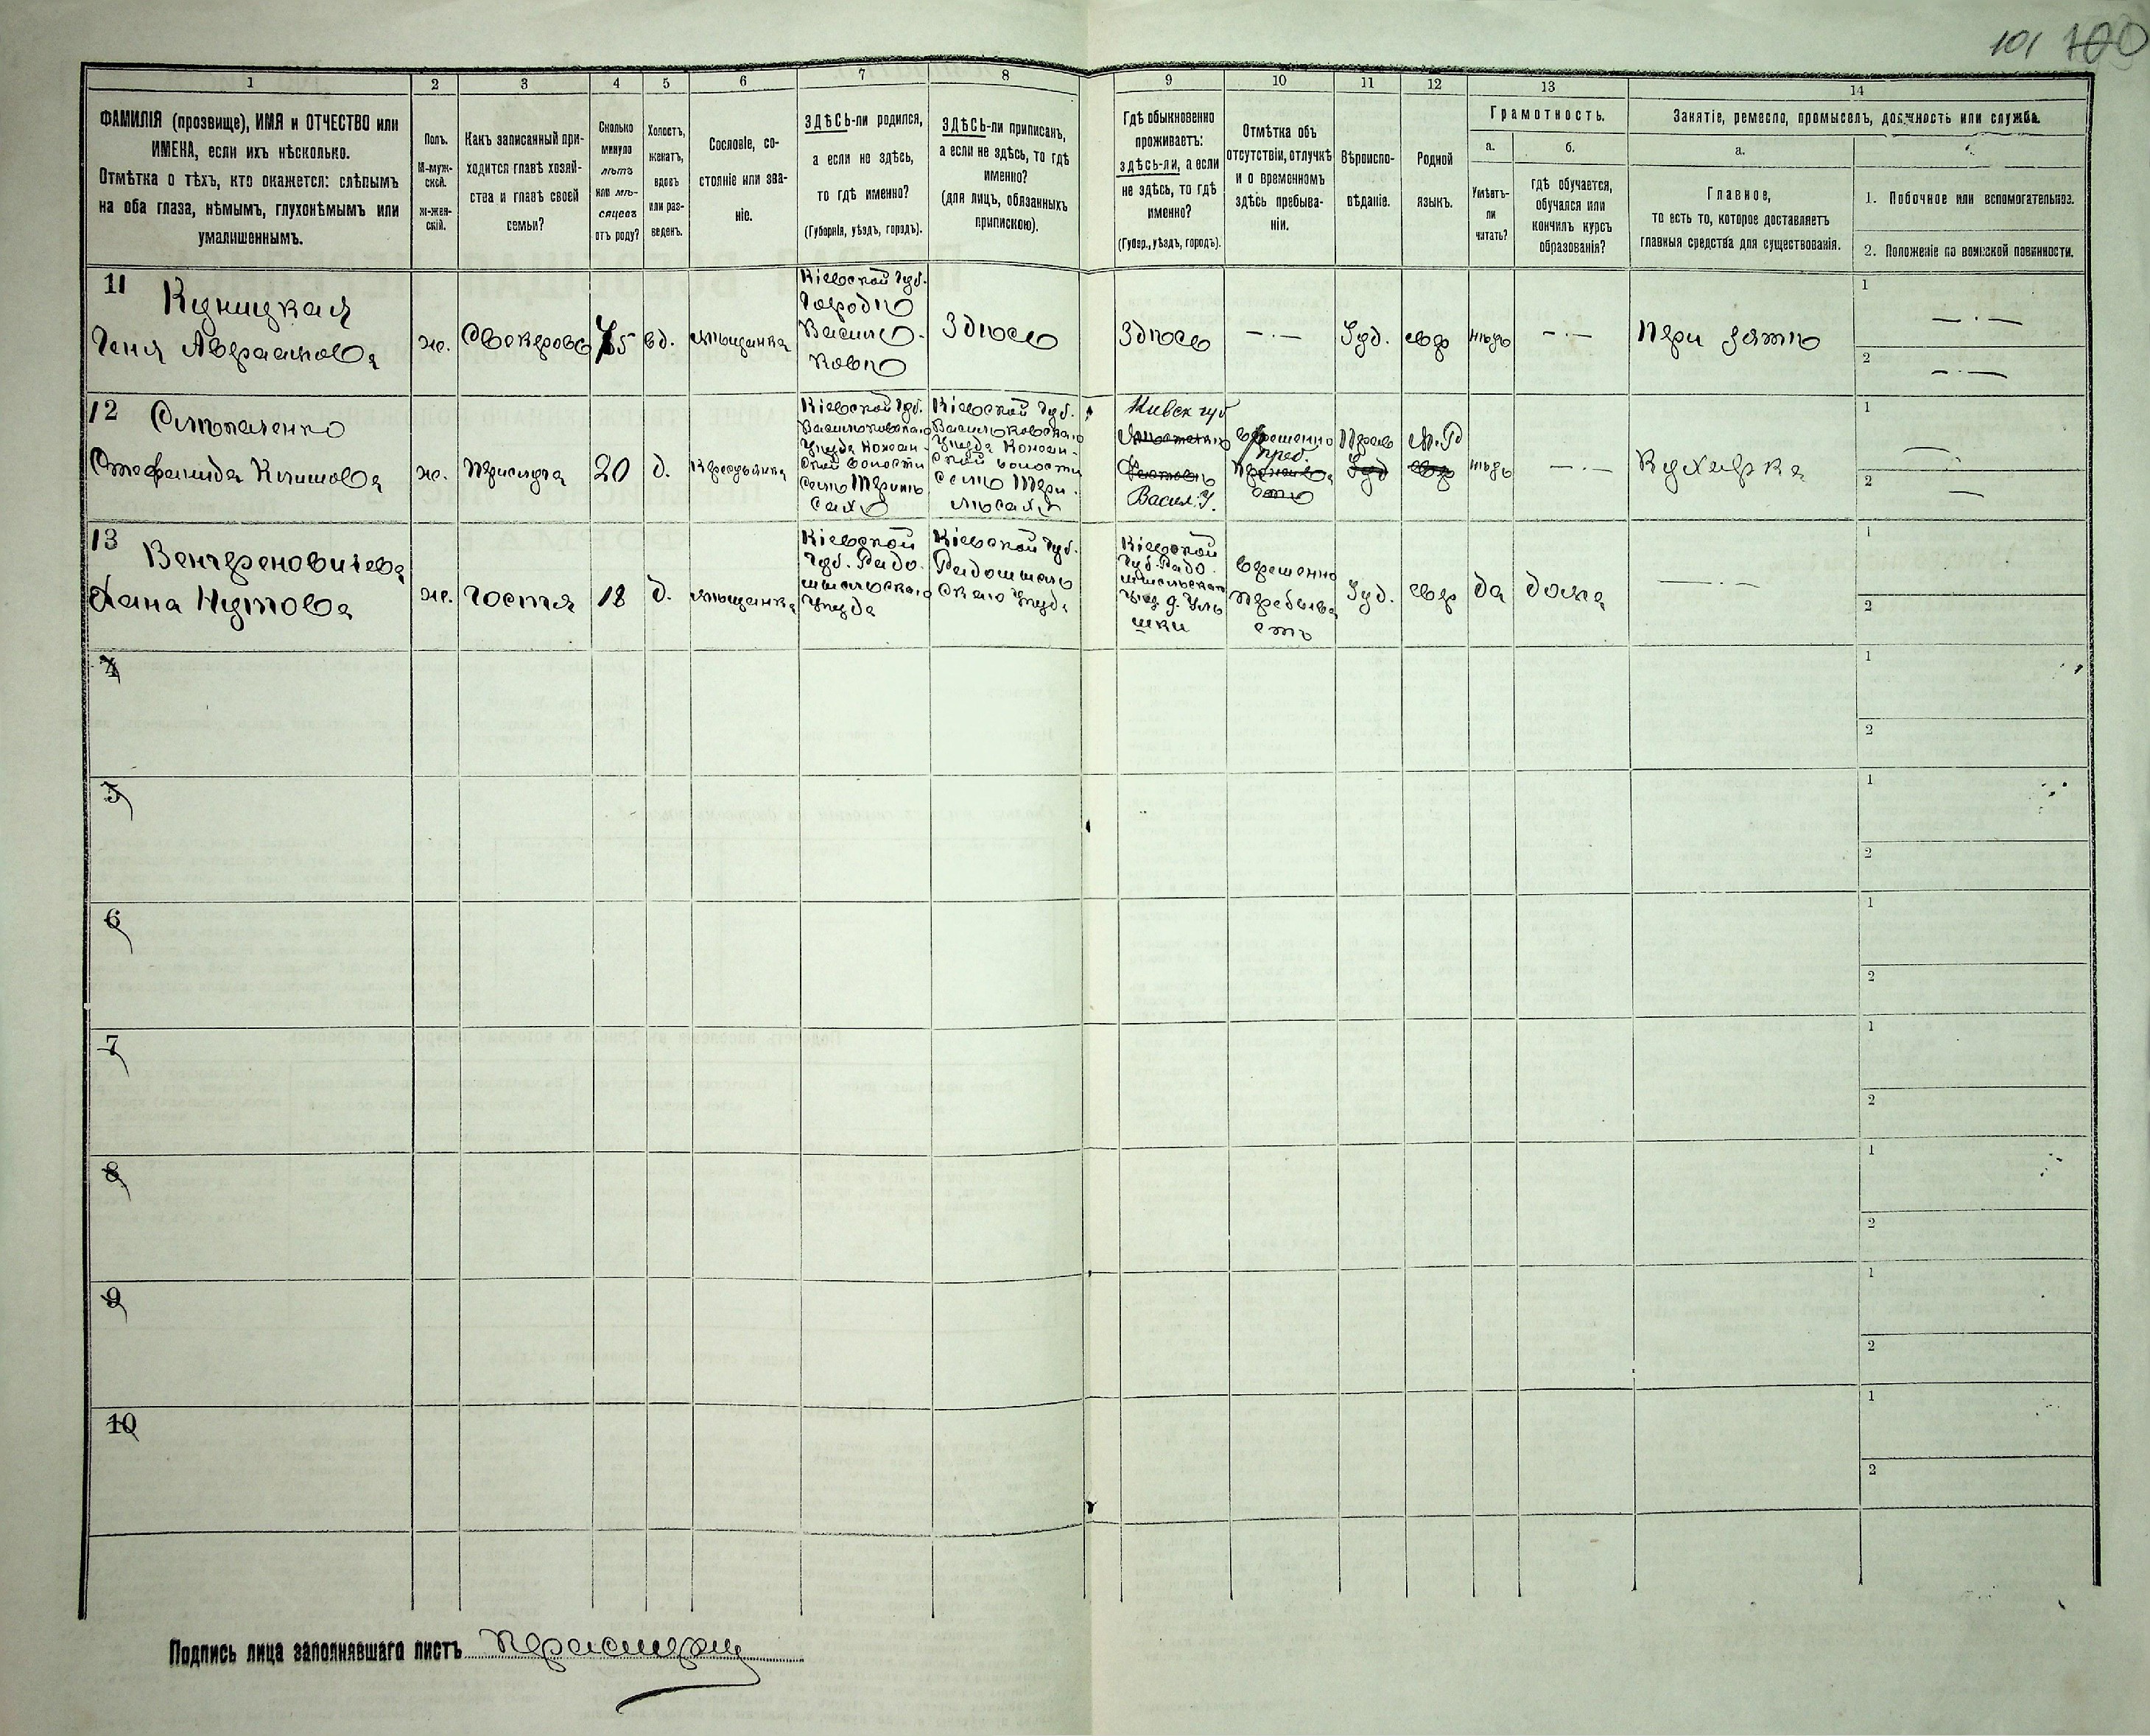 101 100
1
2
3
4
5
6
7
8
9
10
11
12
13
14
ФАМИЛІЯ (прозвище), ИМЯ и ОТЧЕСТВО или
ИМЕНА, если ихъ нѣсколько.
Отмѣтка о тѣхъ, кто окажется: слѣпымъ
на оба глаза, нѣмымъ, глухонѣмымъ или
умалишеннымъ.
Полъ.
М-муж-
ской.
Ж-жен-
скій.
Какъ записанный при-
ходится главѣ хозяй-
ства и главѣ своей
семьи?
Сколько
минуло
лѣтъ
или мѣ-
сяцевъ
отъ роду?
Холостъ,
женатъ,
вдовъ
или раз-
веденъ.
Сословіе, со-
стояніе или зва-
ніе.
ЗДѢСЬ-ли родился,
а если не здѣсь,
то гдѣ именно?
(Губернія, уѣздъ, городъ).
ЗДѢСЬ-ли приписанъ,
а если не здѣсь, то гдѣ
именно?
(для лицъ, обязанныхъ
припискою).
Гдѣ обыкновенно
проживаетъ:
здѣсь-ли, а если
не здѣсь, то гдѣ
именно?
(Губер., уѣздъ, городъ).
Отмѣтка объ
отсутствіи, отлучкѣ
и о временномъ
здѣсь пребыва-
ніи.
Вѣроиспо-
вѣданіе.
Родной
языкъ.
Грамотность.
а.
Умѣетъ-
ли
читать?
б.
гдѣ обучается,
обучался или
кончилъ курсъ
образованія?
Занятіе, ремесло, промыселъ, должность или служба.
а.
Главное,
то есть то, которое доставляетъ
главныя средства для существованія.
1. Побочное или вспомогательное.
2. Положеніе по воинской повинности.
11
Куницкая
Геня Абрамова
ж.
Свекровь
75
вд.
мѣщанка
Кіевской губ.
городъ
Василь-
ковъ
Здѣсь
Здѣсь
— . —
Іуд.
евр
нѣтъ
— . —
При зятѣ
1
— . —
2
— . —
12
Стефанида Климова
ж.
Прислуга
20
д.
Крестьянка
Кіевской губ.
Васильковскаго
уѣзда
волости
село
Кіевской губ.
Васильковскаго
уѣзда
волости
село
Киевск губ
Васил. У.
временно
преб.
Прав
М.Р
Іуд
евр
нѣтъ
— . —
Кухарка
1
2
13
Венгреновичева
Хана Нутова
ж.
Гостя
18
д.
мѣщанка
Кіевской
губ. Радо
мысльскаго
уѣзда
Кіевской губ.
Радомысль
скаго уѣзда
Кіевской
губ. Радо
мысльскаго
временно
пребыва
етъ
Іуд.
евр
да
дома
— . —
1
2
4
1
2
5
1
2
6
1
2
7
1
2
8
1
2
9
1
2
10
1
2
Подпись лица заполнявшаго листъ